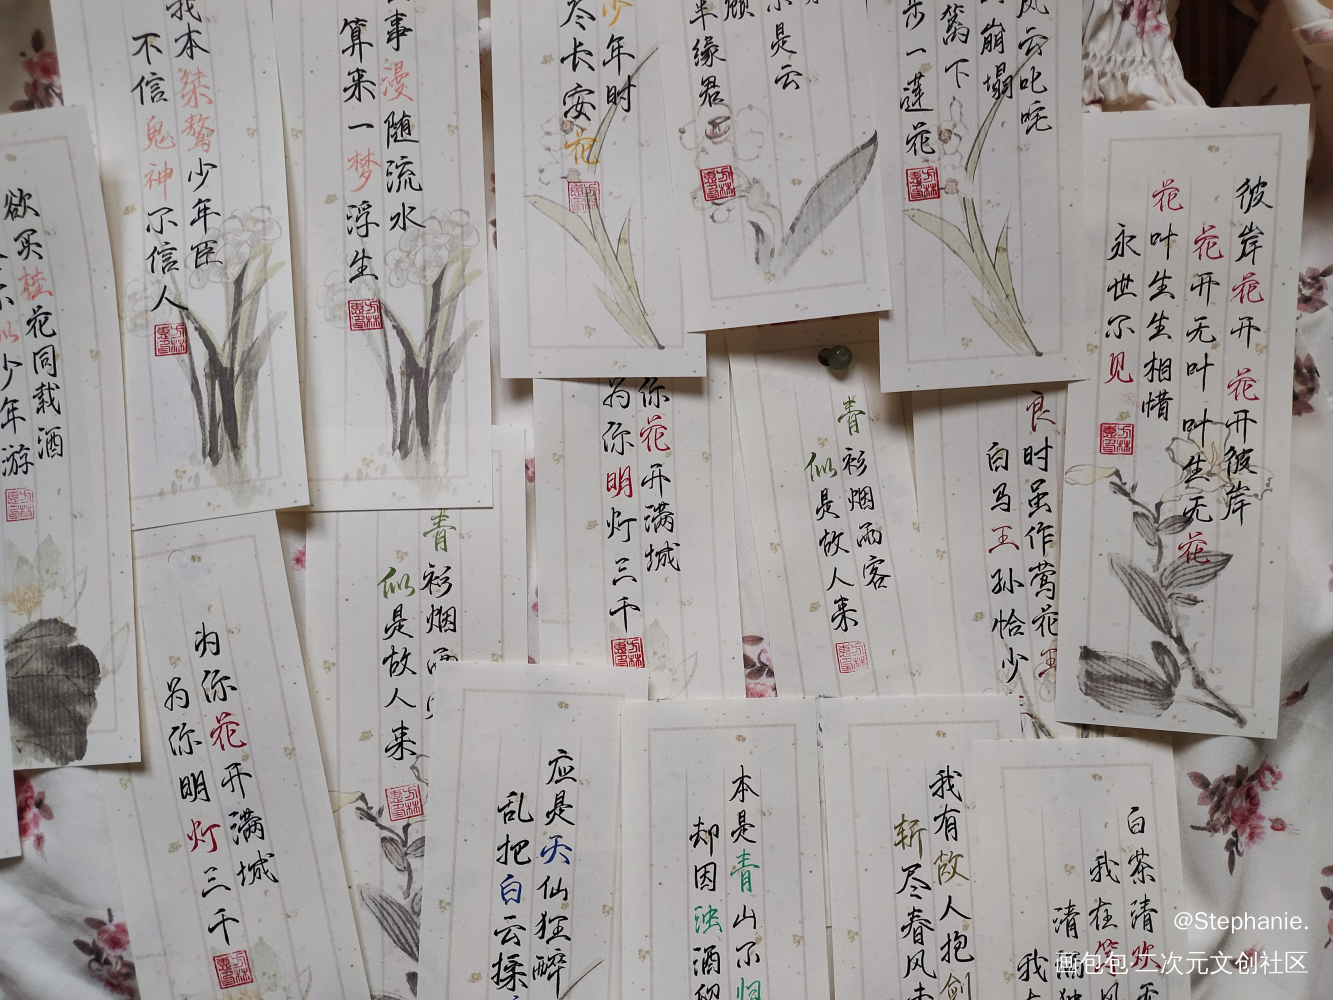 我本桀骜少年臣
不信鬼神不信人
事漫随流水
算来一梦浮生
少年时
尽长安花
不是云
半缘君
风云叱咤
崩塌
篱下
步一莲花
欲买桂花同载酒
不似少年游
彼岸花开 花开彼岸
花开无叶 叶生无花
花叶生生相惜
永世不见
你花开满城
为你明灯三千
青衫烟雨客
似是故人来
良时虽作莺花王
白马王孙恰少
青衫烟雨
似是故人来
为你花开满城
为你明灯三千
应是天仙狂醉
乱把白云揉
本是青山不归
却因浊酒
我有故人抱剑
斩尽春风
白茶清欢无
我在等风
清酒
我
@Stephanie.
画包包·二次元文创社区